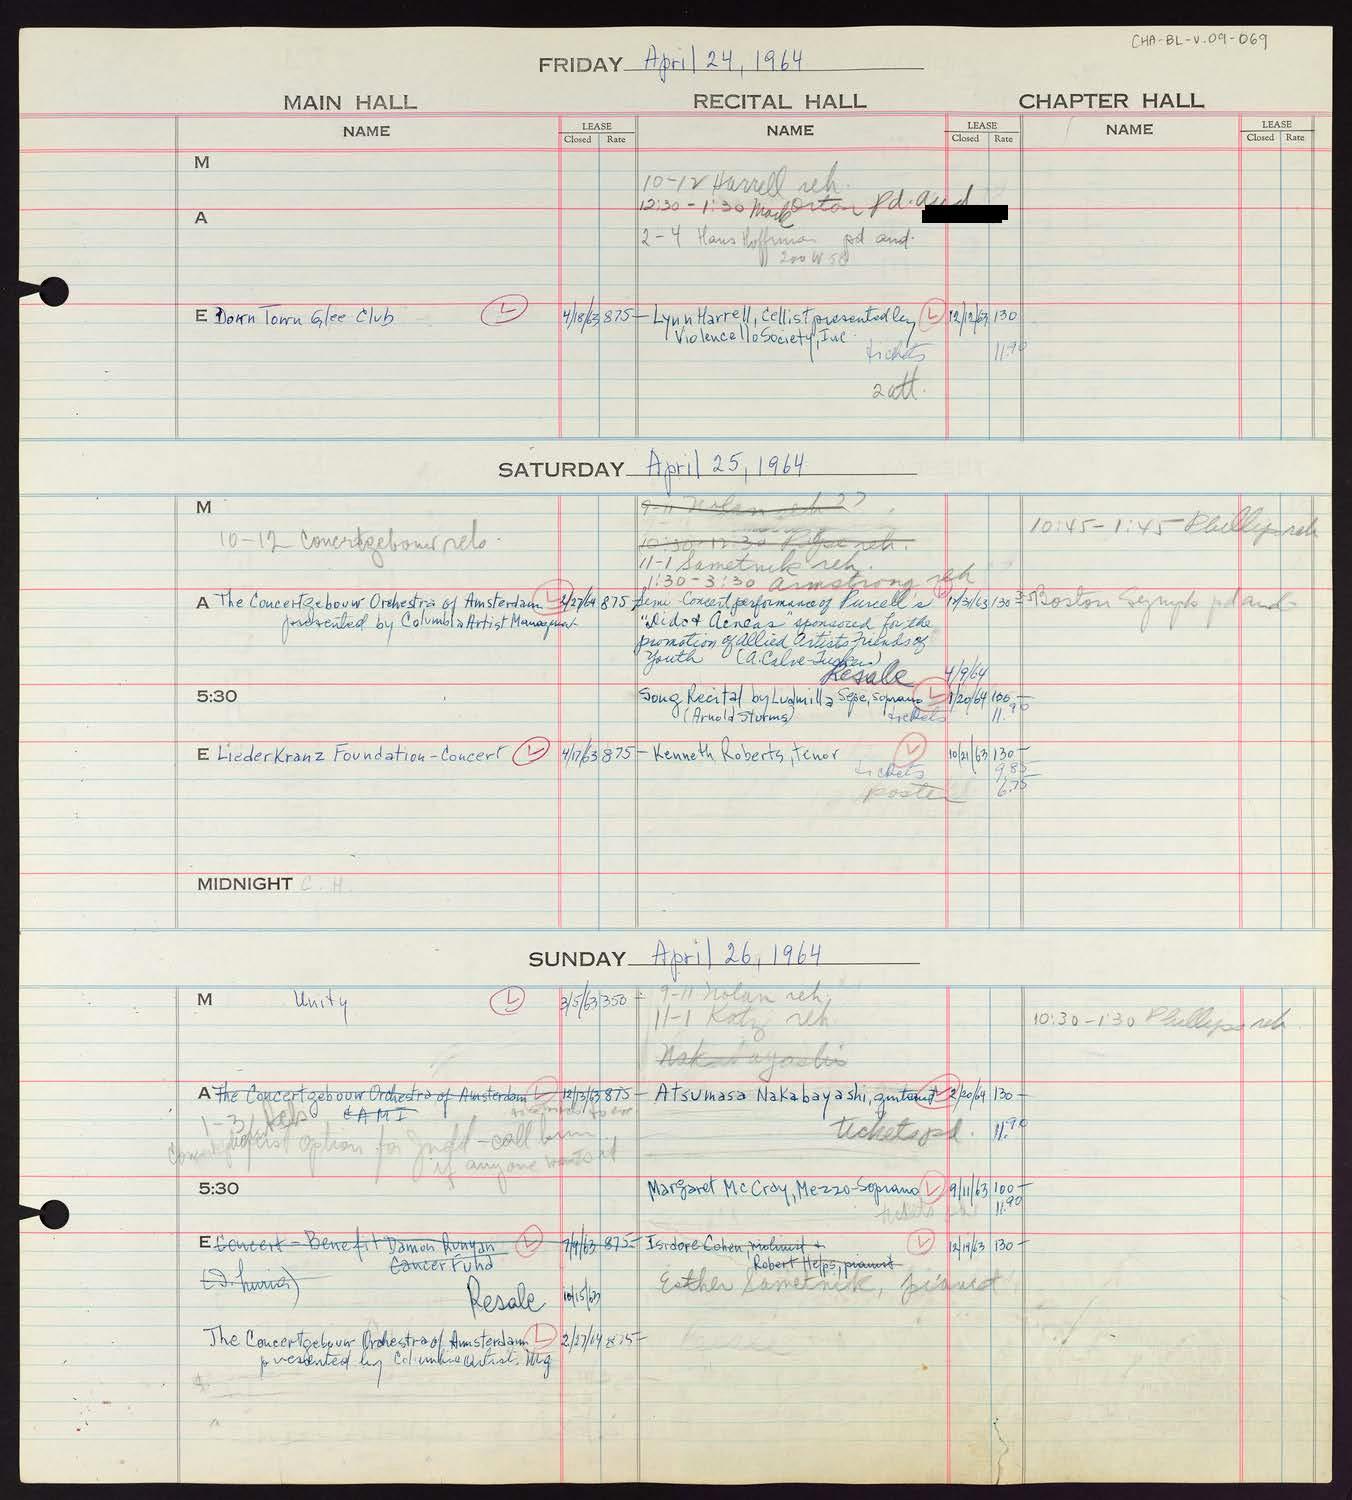 CHA-BL-V.09-069
FRIDAY April 24, 1964
MAIN HALL RECITAL HALL CHAPTER HALL
NAME LEASE Closed Rate NAME LEASE Closed Rate NAME LEASE Closed Rate
M
10-12 Harrell reh.
12:30-1:30 Orton Pd. aud
A
2-4 Hans Hoffman pd aud.
200 W 58
E Down Town Glee Club 4/18/63 875- Lynn Harrell, Cellist presented by 12/12/63 130
Violencello Society, Inc.
tickets 11.90
2 att.
SATURDAY April 25, 1964
M 9-11 Nolan reh
10:45-1:45 Phillips reh
10-12 Concertgebouw reh.
10:30-12:30 reh.
11-1 Sametnik reh.
1:30-3:30 Armstrong reh
A The Concertgebouw Orchestra of Amsterdam 2/27/64 875- Semi-Concert performance of Purcell's 12/31/63 130 Boston Symph pd aud-
presented by Columbia Artist Management
"Dido & Aeneas" sponsored for the
promotion of Allied Artists Friends of
Youth (A. Calve-
Resale 4/9/64
5:30 Song Recital by Ludmilla Sepe, soprano 1/20/64 100-
(Arnold Sturms) tickets 11.90
E LiederKranz Foundation-Concert 4/17/63 875- Kenneth Roberts, tenor 10/21/63 130-
tickets 9.85
poster 6.75
MIDNIGHT C. H.
SUNDAY April 26, 1964
M Unity 3/5/63 350- 9-11 Nolan reh.
11-1 Katz reh
10:30-1:30 Phillips reh.
Nakabayashi
A The Concertgebouw Orchestra of Amsterdam 12/13/63 875- Atsumasa Nakabayashi, guitarist 2/20/64 130-
CAMI
1-3 Reh
tickets pd. 11.90
first option for - call him
if anyone wants it
5:30 Margaret McCray, Mezzo-Soprano 9/11/63 100-
tickets pd. 11.90
E Concert-Benefit Damon Runyan 7/9/63 875- Isidore Cohen, violinist & 12/19/63 130-
Cancer Fund Robert Helps, pianist
Esther Sametnik, pianist
Resale 10/15/63
The Concertgebouw Orchestra of Amsterdam 2/27/64 875-
presented by Columbia Artist. Mg